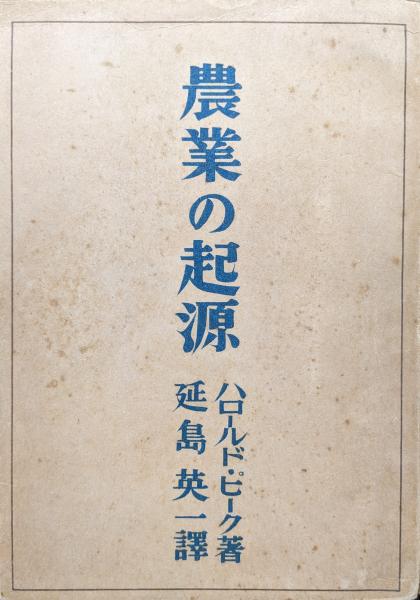 農業の起源
ハロールド・ピーク著
延島英一譯